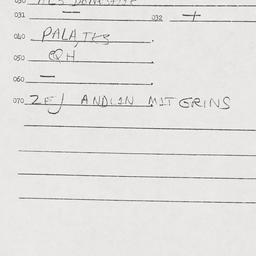 031 — 032 +
040 PALA,TKS
050 QH
060 —
070 ZEJ ANDLIN MITERINS